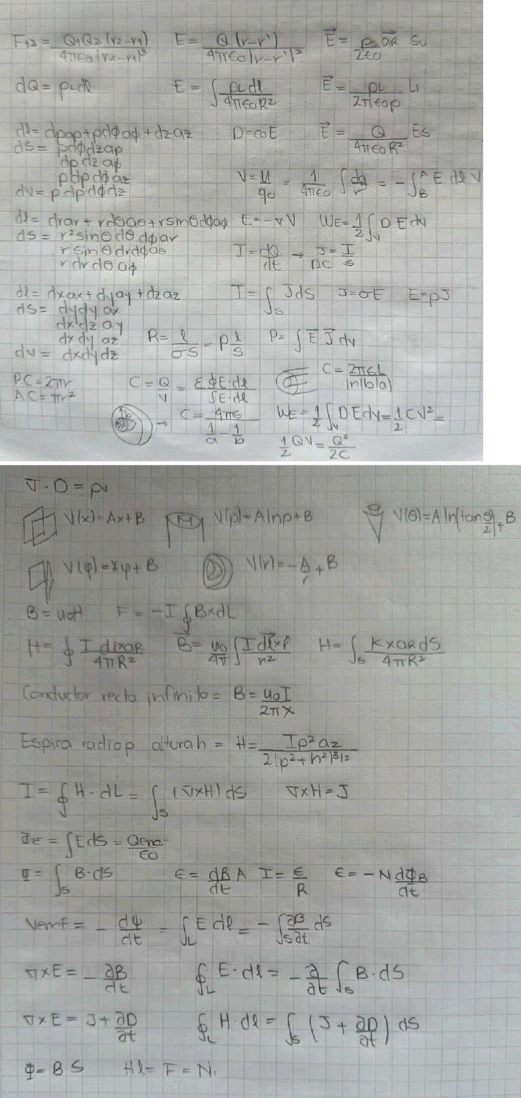 F12 = Q1Q2(r2-r1) / 4πε0|r2-r1|³   E = Q(r-r') / 4πε0|r-r'|²   E⃗ = ρs aR / 2ε0 Su
dQ = ρL dl   E = ∫ ρL dl / 4πε0R²   E⃗ = ρL / 2πε0ρ Li
dl = dρaρ + ρdϕaϕ + dzaz   D = ε0E   E⃗ = Q / 4πε0R² Es
ds = ρdϕdzaρ
dρdzaϕ
ρdρdϕaz
dv = ρdρdϕdz
V = U/q0 = 1/4πε0 ∫ dq/r = -∫_B^A E dl V
dl = drar + rdθaθ + rsinθdϕaϕ   E = -∇V   WE = 1/2 ∫_v D E dv
ds = r²sinθdθdϕar
rsinθdrdϕaθ
rdrdθaϕ
I = dQ/dt → J = I/s
DC
dl = dxax + dyay + dzaz   I = ∫_s J ds   J = σE   E = ρJ
ds = dydyax
dxdzay
dxdyaz
dv = dxdydz
R = l/σS = ρ l/S   P = ∫ E⃗ J⃗ dv
PC = 2πr
AC = πr²
C = Q/V = ε∮E·dl / ∫E·dl   C = 2πεL / ln(b/a)
→ C = 4πε / 1/a 1/b   WE = 1/2 ∫_v D E dv = 1/2 CV² =
1/2 QV = Q²/2C
∇·D = ρv
V(x) = Ax+B   V(ρ) = Alnρ+B   V(θ) = Aln(tan θ/2)+B
V(φ) = Aφ+B   V(r) = -A/r + B
B = u0H   F = -I∮B×dL
H = ∮ I dl×aR / 4πR²   B⃗ = u0/4π ∫ I dl⃗×r̂ / r²   H = ∫_s K×aRdS / 4πR²
Conductor recto infinito = B = u0I / 2πx
Espira radio ρ altura h = H = Iρ²az / 2(ρ²+h²)^3/2
I = ∮ H·dL = ∫_s (∇×H)ds   ∇×H = J
ΦE = ∫Eds = Qenc/ε0
Φ = ∫_s B·ds   ε = dB/dt A   I = ε/R   ε = -N dΦB/dt
Vemf = -dψ/dt = ∫_L E dl = -∫_s ∂B/∂t ds
∇×E = -∂B/∂t   ∮_L E·dl = -∂/∂t ∫_s B·dS
∇×E = J + ∂D/∂t   ∮_L H·dl = ∫_s (J + ∂D/∂t) ds
Φ = B·S   Hl = F = Ni